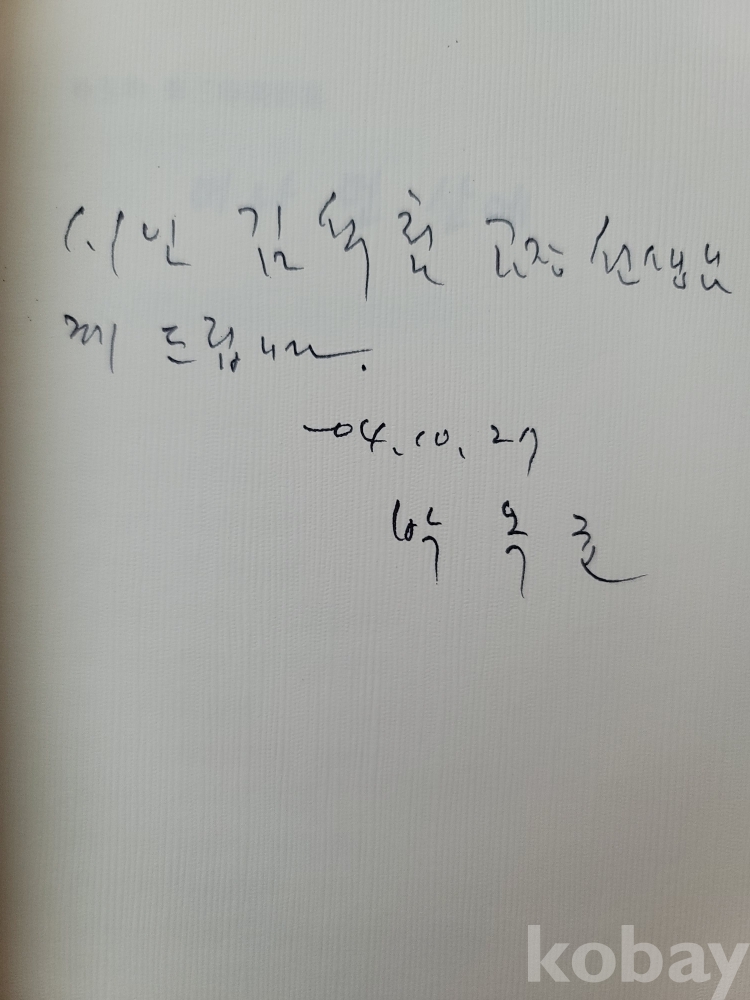 시인 김석철 교장 선생님
께 드립니다.
-04. 10. 27
박옥
kobay